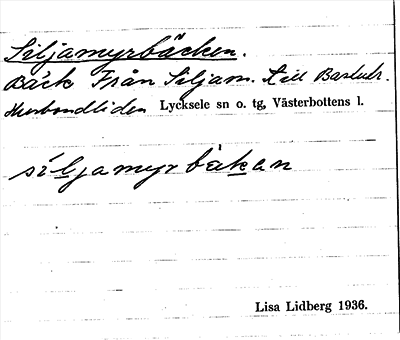 Siljamyrbäcken.
Bäck Från Siljam. till Bastutr.
Lycksele sn o. tg, Västerbottens l.
siljamyrbäkan
Lisa Lidberg 1936.